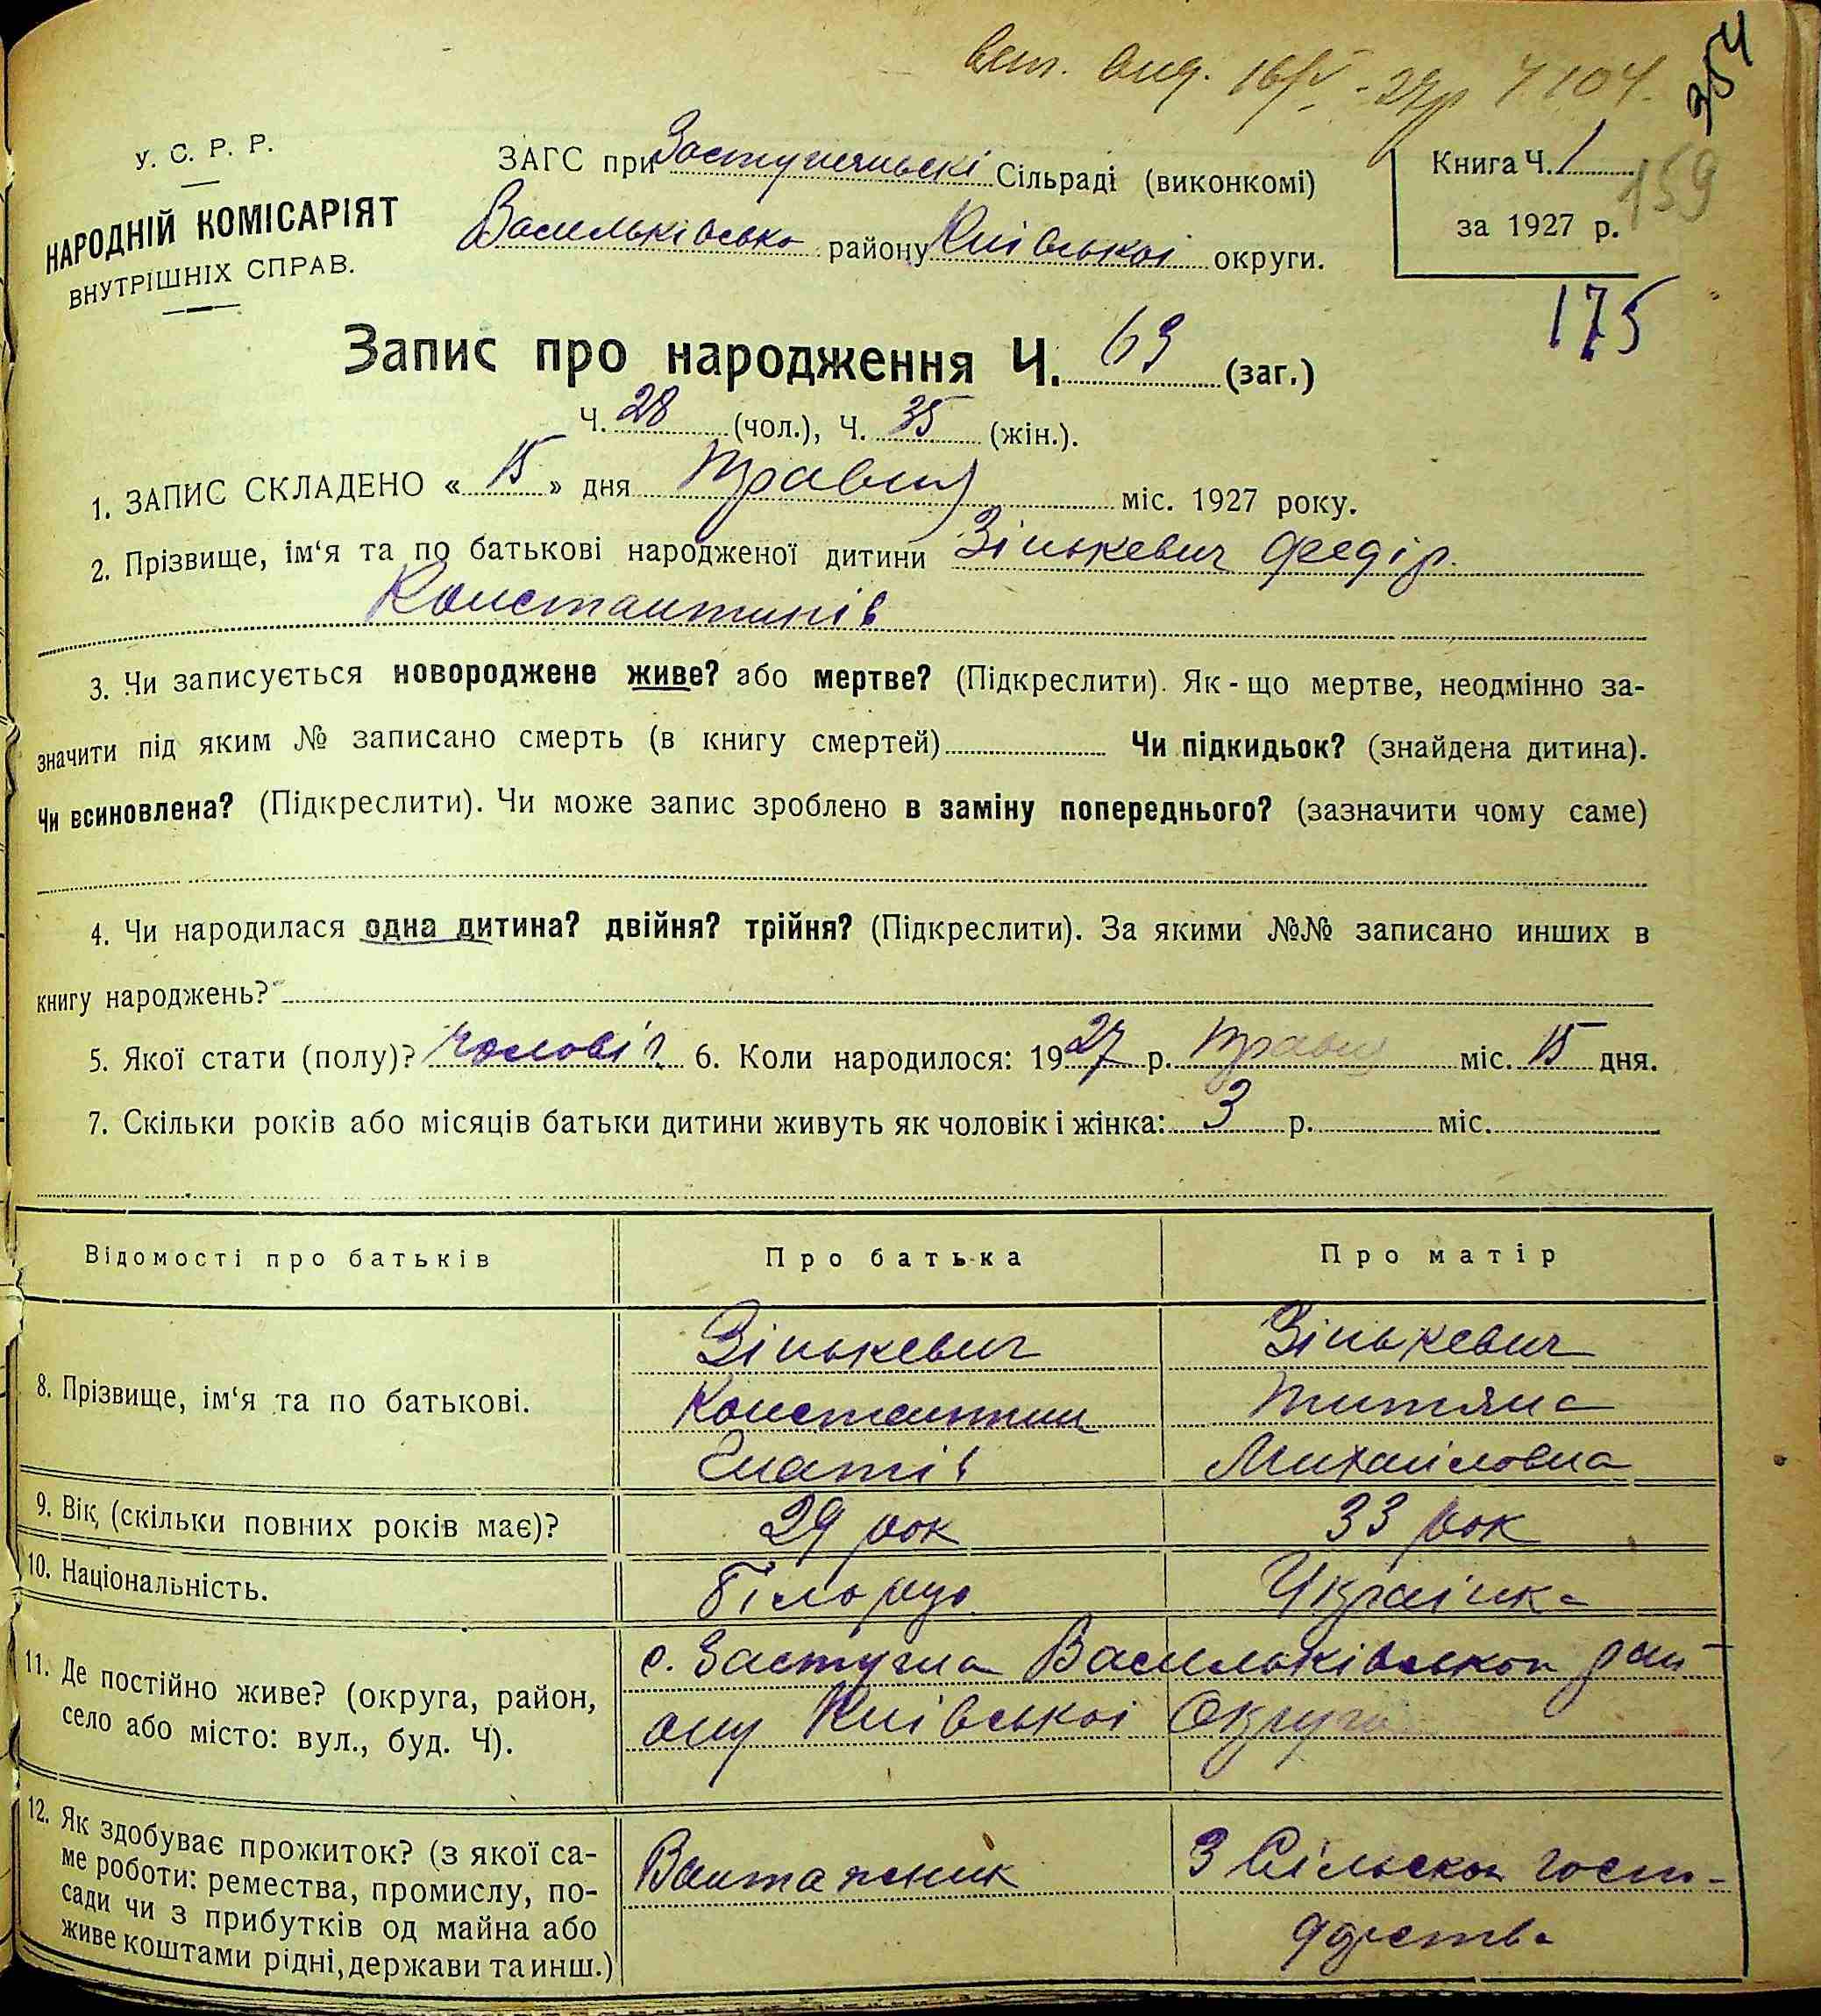 354
У. С. Р. Р.
НАРОДНІЙ КОМІСАРІЯТ
ВНУТРІШНІХ СПРАВ.
ЗАГС при Застугнянські Сільраді (виконкомі)
Васильківсько району Київської округи.
Книга Ч. 1
159
за 1927 р.
175
Запис про народження Ч. 63 (заг.)
Ч. 28 (чол.), Ч. 35 (жін.).
1. ЗАПИС СКЛАДЕНО « 15 » дня Травня міс. 1927 року.
2. Прізвище, ім‘я та по батькові народженої дитини Зінькевич Федір
Константинів
3. Чи записується новороджене живе? або мертве? (Підкреслити). Як-що мертве, неодмінно за-
значити під яким № записано смерть (в книгу смертей) Чи підкидьок? (знайдена дитина).
Чи всиновлена? (Підкреслити). Чи може запис зроблено в заміну попереднього? (зазначити чому саме)
4. Чи народилася одна дитина? двійня? трійня? (Підкреслити). За якими №№ записано инших в
книгу народжень?
5. Якої стати (полу)? чоловіч 6. Коли народилося: 1927 р. Травня міс. 15 дня.
7. Скільки років або місяців батьки дитини живуть як чоловік і жінка: 3 р. міс.
Відомості про батьків Про батька Про матір
8. Прізвище, ім‘я та по батькові.
Зінькевич Зінькевич
Константин Титяна
Гнатів Михаиловна
9. Вік, (скільки повних років має)? 29 рок 33 рок
10. Національність. Білорус Українка
11. Де постійно живе? (округа, район,
село або місто: вул., буд. Ч).
с. Застугна Васильківської рай-
ону Київської Округи
12. Як здобуває прожиток? (з якої са-
ме роботи: ремества, промислу, по-
сади чи з прибутків од майна або
живе коштами рідні, держави та инш.)
Вантажник З Сільскон госпо-
дарства